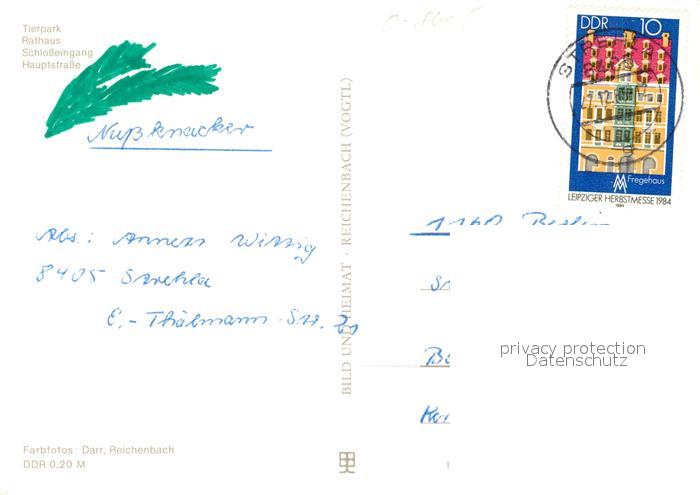 Tierpark
Rathaus
Schloßeingang
Hauptstraße
Nußknacker
Abs.: Anners Wittig
8405 Strehla
E.-Thälmann-Str.
Farbfotos: Darr, Reichenbach
DDR 0,20 M
BILD UND HEIMAT · REICHENBACH (VOGTL)
DDR 10
Fregehaus
LEIPZIGER HERBSTMESSE 1984
1984
1160 Berlin
privacy protection
Datenschutz